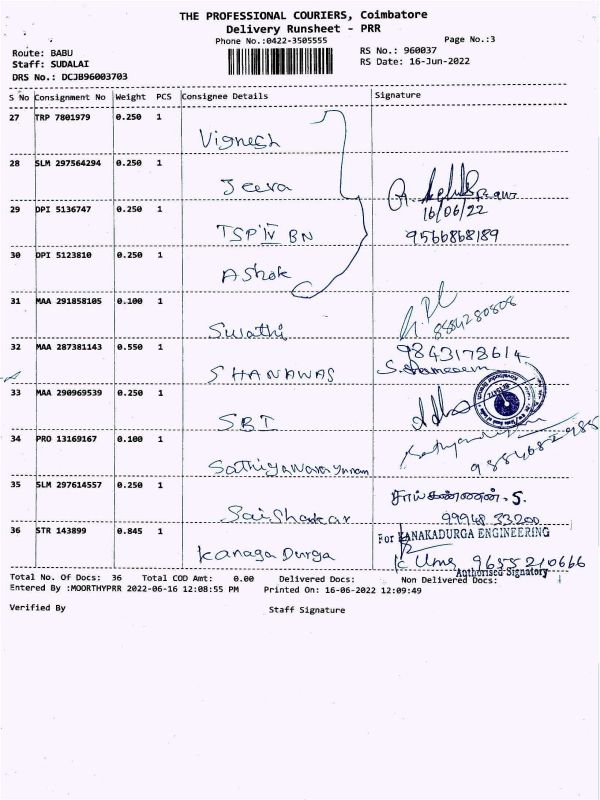 THE PROFESSIONAL COURIERS, Coimbatore
Delivery Runsheet - PRR
Phone No.:0422-3505555
Page No.:3
Route: BABU
RS No.: 960037
Staff: SUDALAI
RS Date: 16-Jun-2022
DRS No.: DCJB96003703
S No Consignment No Weight PCS Consignee Details Signature
27 TRP 7801979 0.250 1
Vignesh
28 SLM 297564294 0.250 1
Jeeva
16/06/22
29 DPI 5136747 0.250 1
TSP IV BN 9566868189
30 DPI 5123810 0.250 1
Ashok
31 MAA 291858105 0.100 1
Swathi 8884280808
32 MAA 287381143 0.550 1 9843178614
SHANAWAS S.
33 MAA 290969539 0.250 1
SBI
34 PRO 13169167 0.100 1
9884682985
35 SLM 297614557 0.250 1 சாய்கண்ணன். S.
Saishankar 99948 33200
36 STR 143899 0.845 1 For KANAKADURGA ENGINEERING
Kanaga Durga K Uma 9655210666
Authorised Signatory
Total No. Of Docs: 36 Total COD Amt: 0.00 Delivered Docs: Non Delivered Docs:
Entered By :MOORTHYPRR 2022-06-16 12:08:55 PM Printed On: 16-06-2022 12:09:49
Verified By Staff Signature